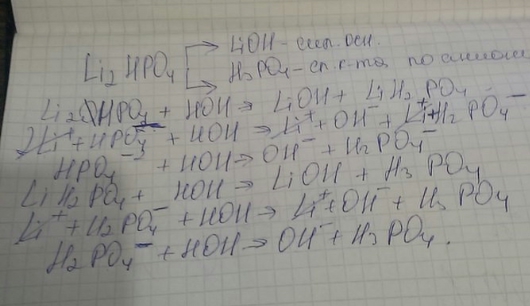 Li₂HPO₄ → LiOH - сил. осн.
→ H₃PO₄ - сл. к-та по аниону
Li₂HPO₄ + HOH → LiOH + LiH₂PO₄
2Li⁺ + HPO₄⁻ + HOH → Li⁺ + OH⁻ + Li⁺ + H₂PO₄⁻
HPO₄⁻ + HOH → OH⁻ + H₂PO₄⁻
LiH₂PO₄ + HOH → LiOH + H₃PO₄
Li⁺ + H₂PO₄⁻ + HOH → Li⁺ + OH⁻ + H₃PO₄
H₂PO₄⁻ + HOH → OH⁻ + H₃PO₄.